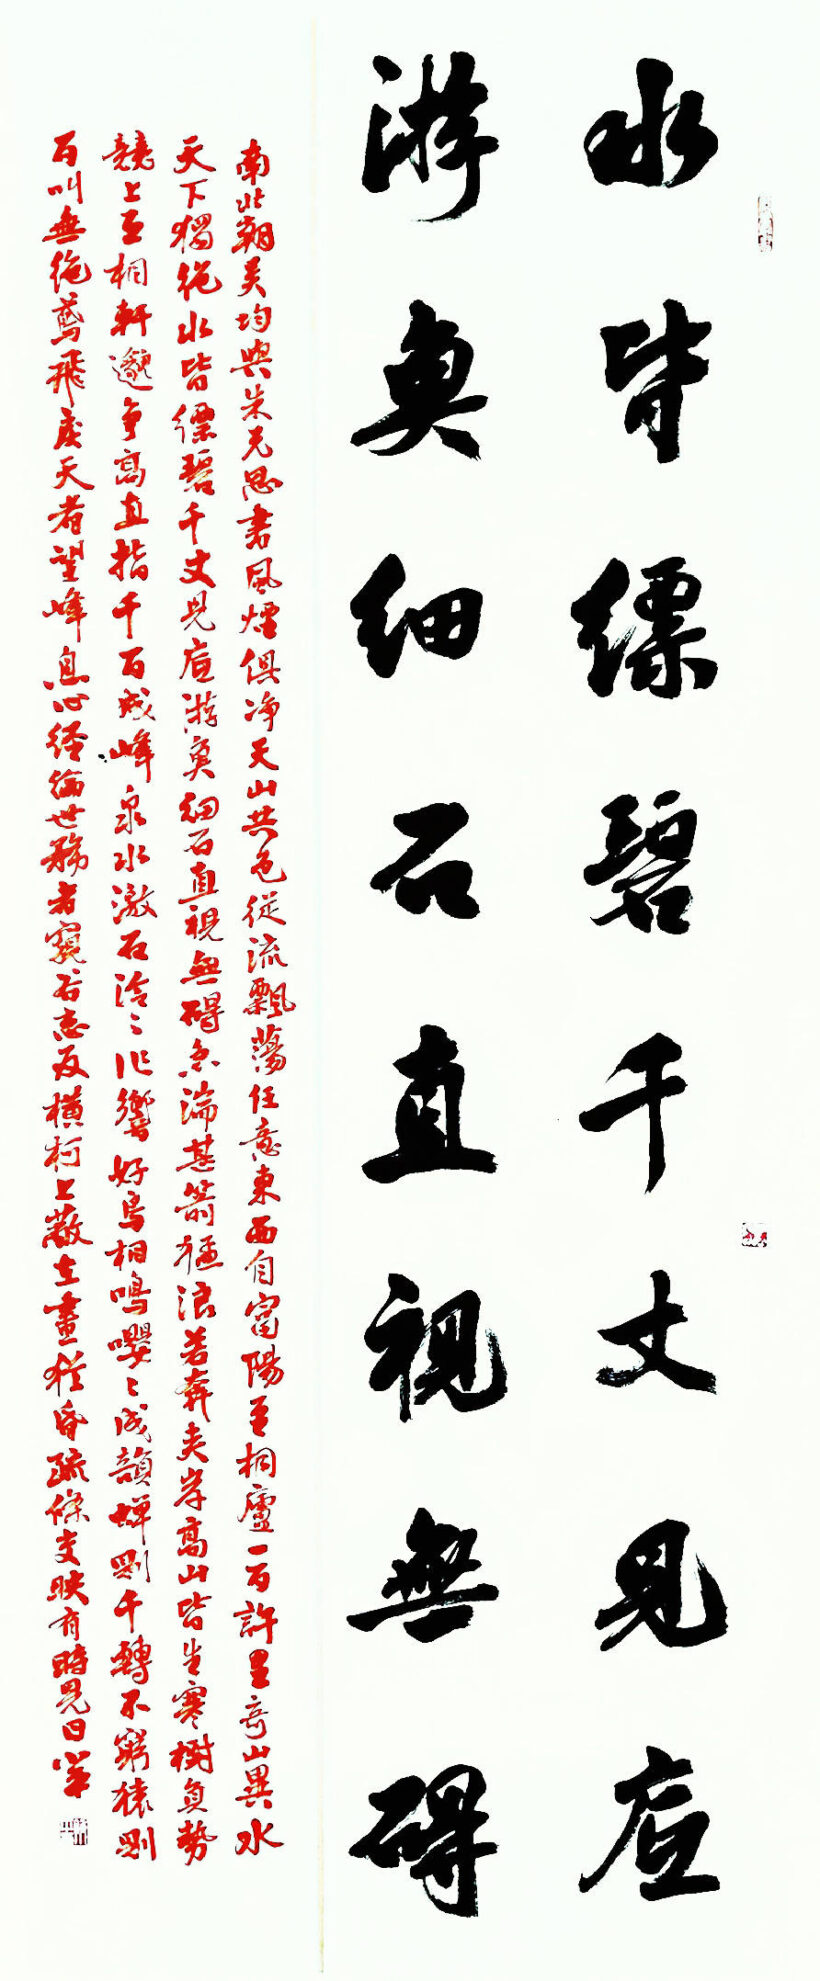 水皆縹碧千丈見底
游魚細石直視無礙
南北朝吴均與朱元思書風煙俱净天山共色從流飄蕩任意東西自富陽至桐廬一百許里奇山異水
天下獨絶水皆縹碧千丈見底游魚細石直視無礙急湍甚箭猛浪若奔夹岸高山皆生寒樹負勢
競上互相軒邈争高直指千百成峰泉水激石泠〻作響好鳥相鳴嚶〻成韻蟬則千轉不窮猿則
百叫無绝鳶飛戾天者望峰息心经綸世務者窺谷忘反横柯上蔽在晝猶昏疏條交映有時見日